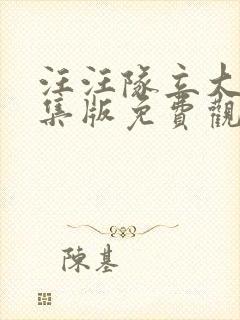 汪汪隊立大
集版免費觀
陳基